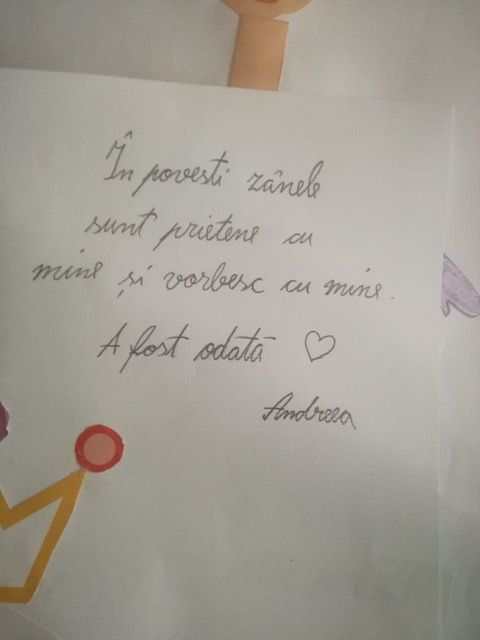 În povesti zânele
sunt prietene cu
mine și vorbesc cu mine.
A fost odată ♡
Andreea